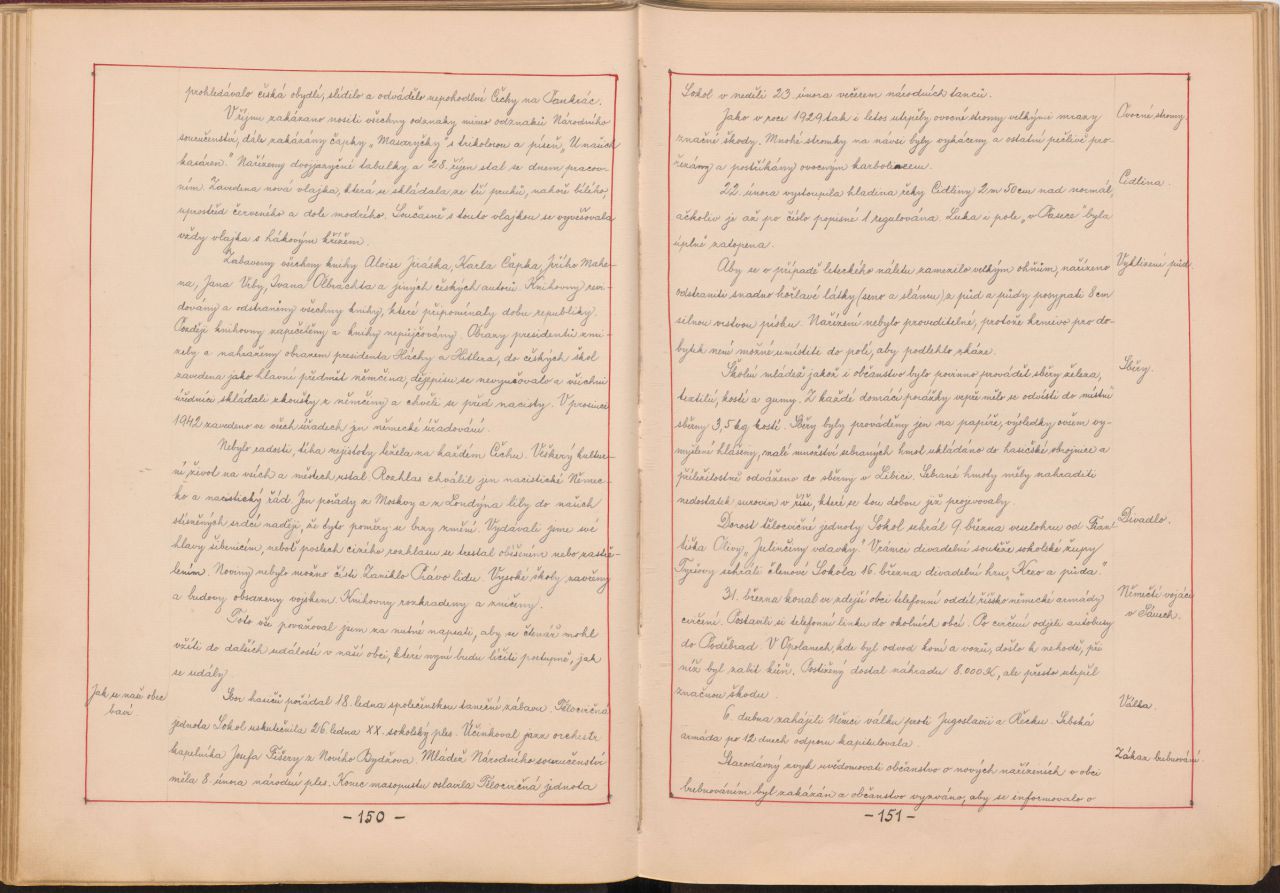 prohledávalo česká obydlí, slídilo a odvádělo nepohodlné Čechy na Pankrác.
V říjnu zakázano nositi všechny odznaky mimo odznaků Národního
souručenství, dále zakázány čapky „Masaryčky" s trikolorou a píseň „U našich
kasáren." Nařízeny dvojjazyčné tabulky a 28. říjen stal se dnem pracov-
ním. Zavedena nová vlajka, která se skládala ze tří pruhů, nahoře bílého,
uprostřed červeného a dole modrého. Současně s touto vlajkou se vyvěšovala
vždy vlajka s hákovým křížem.
Zabaveny všechny knihy Aloise Jiráska, Karla Čapka, Jiřího Mahe-
na, Jana Vrby, Ivana Olbrachta a jiných českých autorů. Knihovny revi-
dovány a odstraněny všechny knihy, které připomínaly dobu republiky.
Později knihovny zapečetěny a knihy nepůjčovány. Obrazy presidentů zmi-
zely a nahrazeny obrazem presidenta Háchy a Hitlera, do českých škol
zavedena jako hlavní předmět němčina, dějepisu se nevyučovalo a všichni
úředníci skládali zkoušky z němčiny a chvěli se před nacisty. V prosinci
1942 zavedeno ve všech úřadech jen německé úřadování.
Nebylo radosti, tíha nejistoty ležela na každém Čechu. Veškerý kultur-
ní život na vsích a městech ustal. Rozhlas chválil jen nacistické Němec-
ko a nacistický řád. Jen pořady z Moskvy a z Londýna lily do našich
stísněných srdcí naději, že byto poměry se brzy změní. Vydávali jsme své
hlavy šibenicím, neboť poslech cizího rozhlasu se trestal oběšením nebo zastře-
lením. Noviny nebylo možno čísti. Zaniklo Právo lidu. Vysoké školy zavřeny
a budovy obsazeny vojskem. Knihovny rozkradeny a zničeny.
Toto vše považoval jsem za nutné napsati, aby se čtenář mohl
vžíti do dalších událostí v naší obci, které nyní budu líčiti postupně, jak
se udály.
Jak se naše obec
baví.
Sbor hasičů pořádal 18. ledna společenskou taneční zábavu. Tělocvičná
jednota Sokol uskutečnila 26. ledna XX. sokolský ples. Účinkoval jazz orchestr
kapelníka Josefa Fišery z Nového Bydžova. Mládež Národního souručenství
měla 8. února národní ples. Konec masopustu oslavila Tělocvičná jednota
- 150 -
Sokol v neděli 23. února večerem národních tanců.
Ovocné stromy.
Jako v roce 1929 tak i letos utrpěly ovocné stromy velkými mrazy
značné škody. Mnohé stromky na návsi byly vykáceny a ostatní pečlivě pro-
řezány a postříkány ovocným karbolineem.
Cidlina.
22. února vystoupila hladina řeky Cidliny 2 m 50 cm nad normál,
ačkoliv je až po číslo popisné 1 regulována. Luka i pole „v Pasece" byla
úplně zatopena.
Vyklizení půd.
Aby se v případě leteckého náletu zamezilo velkým ohňům, nařízeno
odstraniti snadno hořlavé látky (seno a slámu) z půd a půdy posypati 8 cm
silnou vrstvou písku. Nařízení nebylo proveditelné, protože krmivo pro do-
bytek není možné umístiti do polí, aby podlehlo zkáze.
Sběry.
Školní mládež jakož i občanstvo bylo povinno prováděti sběry železa,
textilu, kostí a gumy. Z každé domácí porážky vepře mělo se odvésti do místní
sběrny 3,5 kg kostí. Sběry byly prováděny jen na papíře, výsledky ovšem vy-
myšleny hlášeny, malé množství sebraných hmot ukládáno do hasičské zbrojnice a
příležitostně odváženo do sběrny v Libici. Sebrané hmoty měly nahraditi
nedostatek surovin v říši, které se tou dobou již projevovaly.
Divadlo.
Dorost tělocvičné jednoty Sokol sehrál 9. března veselohru od Fran-
tiška Olivy „Julinčiny vdavky." V rámci divadelní soutěže sokolské župy
Tyršovy sehráli členové Sokola 16. března divadelní hru „Krev a půda."
Němečtí vojáci
v Sánech.
31. března konal ve zdejší obci telefonní oddíl říšsko německé armády
cvičení. Postavili si telefonní linku do okolních obcí. Po cvičení odjeli autobusy
do Poděbrad. V Opolanech, kde byl odvod koní a vozů, došlo k nehodě, při
níž byl zabit kůň. Postižený dostal náhradu 8.000 K, ale přesto utrpěl
značnou škodu.
Válka.
6. dubna zahájili Němci válku proti Jugoslavii a Řecku. Srbská
armáda po 12 dnech odporu kapitulovala.
Zákaz bubnování.
Starodávný zvyk uvědomovati občanstvo o nových nařízeních v obci
bubnováním byl zakázán a občanstvo vyzváno, aby se informovalo o
- 151 -